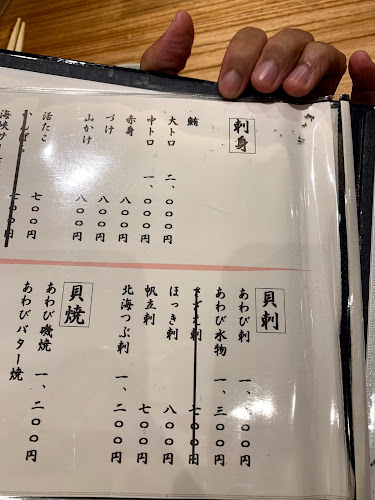 刺身
鮪
大トロ 二、〇〇〇円
中トロ 一、〇〇〇円
赤身 八〇〇円
づけ 八〇〇円
山かけ 八〇〇円
活たこ 七〇〇円
七〇〇円
海峡サ
貝刺
あわび刺 一、〇〇〇円
あわび水物 一、三〇〇円
さざえ刺 七〇〇円
ほっき刺 八〇〇円
帆立刺 七〇〇円
北海つぶ刺 一、二〇〇円
貝焼
あわび磯焼 一、二〇〇円
あわびバター焼